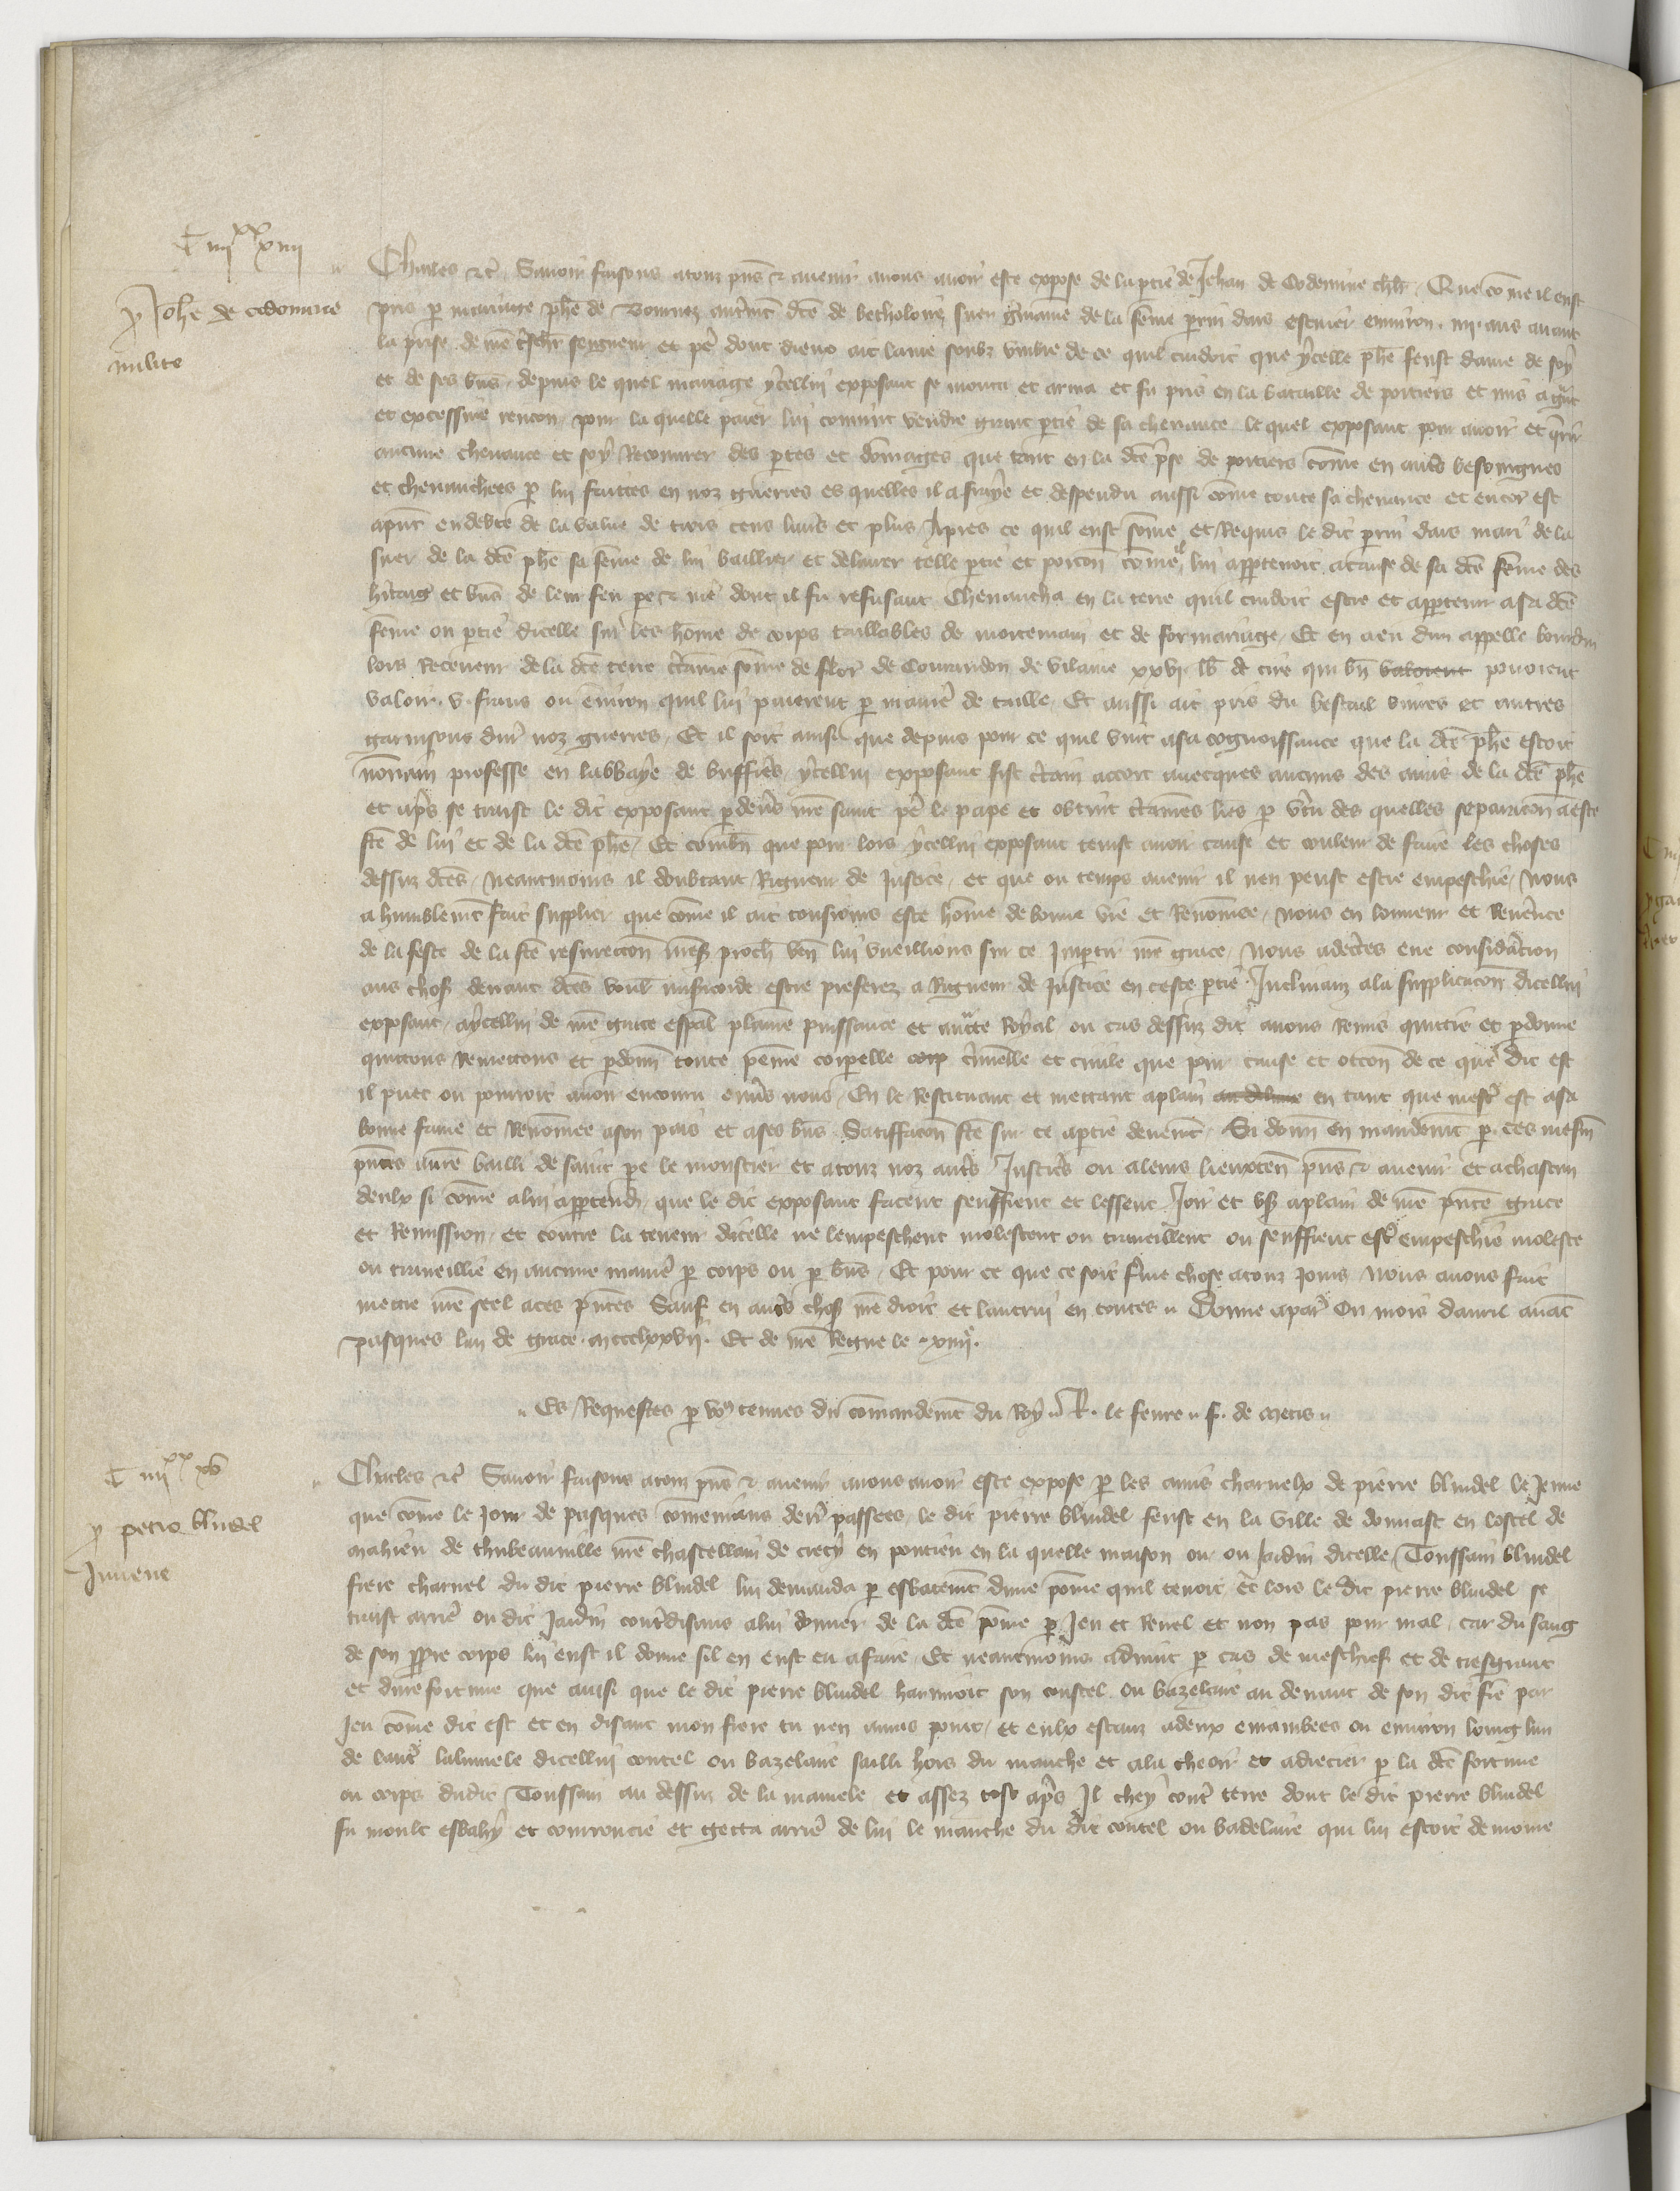 C iiii xx xiiii
p Johe de codomine
milite
Charles etc. Savoir faisons a touz pns et avenir avons avoir este expose de la ptie de Jehan de Codemine chlr. Que come il eust
pris p mariage phe de autremt dce de betholouz suer germaine de la feme perrin dars escuier environ .iiii. ans avant
la prise de nre treschr seigneur et pe dont dieux ait lame soubz umbre de ce quil cuidoit que ycelle phe feust dame de soy
et de ses bns, depuis le quel mariage ycellui exposant se monta et arma et fu pris en la bataille de poitiers et mis a gnt
et excessive rencon pour la quelle paier lui convint vendre grant ptie de sa chevance le quel exposant pour avoir et querir
aucune chevance et soy Recouvrer des ptes et domages que tant en la dce pse de poitiers come en autres besoingnes
et chevauchees p lui faittes en noz guerres es quelles il a fraye et despendu aussi come toute sa chevance et encor est
apnt endebte de la value de trois cens livres et plus, Apres ce quil eust some et Requis le dit perrin dars mari de la
suer de la dce phe sa feme de lui baillier et delivrer telle ptie et porcion come il lui apptenoit a cause de sa dce feme des
hitaig et bns de leur feu pe et me dont il fu refusant Chevaucha en la terre quil cuidoit estre et apptenir a sa dce
feme ou ptie dicelle sur les home de corps taillables de mortemain et de formariage, Et en a eu dun appelle bourdin
lors Receveur de la dce terre ctaine some de flor de Connandon de vilaine xxvi lb de cire qui bn valoient povoient
valoir .v. frans ou environ quil lui paierent p manie de taille, Et aussi ait pris du bestail vivres et autres
garnisons dur noz guerres, Et il soit ainsi que depuis pour ce quil vint a sa cognoissance que la dce phe estoit
nonain professe en labbaye de buffieres ycellui exposant fist ctain accort avecques aucuns des amis de la dce phe
et apres se traist le dit exposant pdevers nre saint pe le pape et obtint ctaines lres p vtu des quelles separacion a este
fte de lui et de la dce phe, Et combn que pour lors ycellui exposant tenist avoir cause et couleur de faire les choses
dessuz dces, Neantmoins il doubtant Rigueur de Justice, et que ou temps avenir il nen peust estre empeschie, Nous
a humblemt fait supplier que come il ait tousiours este home de bonne vie et Renomee, Nous en lonneur et Reverence
de la feste de la ste resurreccon nres proch ven lui vueillions sur ce Impartir nre grace, Nous adectes eue consideracion
aus chos devant dces voul misicorde estre preferez a Rigueur de Justice en ceste ptie Inclinanz a la supplicacion dicellui
exposant, a ycellui de nre grace espal plaine puissance et auctte Royal ou cas dessuz dit avons Remis quittie et pdonne
quittons Remettons et pdonn toute peine corporelle corp criminelle et civile que pour cause et occon de ce que dit est
il puet ou pourroit avoir encouru envers nous, En le Restituant et mettant a plain en tant que mest est a sa
bonne fame et Renomee a son pais et a ses bns Satiffacon fte sur ce a ptie devemt, Si donn en mandemt p ces mesm
pntes au bailli de saint pe le monstier et a touz noz autres Justices ou a leurs lieuxten pns et avenir et a chascun
deulx si come a lui apptend, que le dit exposant facent seuffrent et lessent Joir et us a plain de nre pnte grace
et Remission, et contre la teneur dicelle ne lempeschent molestent ou traveillent ou seuffrent est empeschie moleste
ou traveillie en aucune manie p corps ou p bns, Et pour ce que ce soit ferme chose a touz Jours, Nous avons fait
mettre nre seel a ces pntes Sauf en autres chos nre droit et lautrui en toutes. Donne a par Ou mois davril avat
pasques lan de grace .mccclxxvii. Et de nre Regne le .xiiii.
Es Requestes p vo tenues du comandemt du Roy R. le fevre f. de metis
C iiii xx xv
p petro bludel
Juvene
Charles etc Savoir faisons a touz pns et avenir avons avoir este expose p les amis charnelx de pierre blundel le Jeune
que come le Jour de pasques comenians derr passees, le dit pierre blundel feust en la ville de donnast en lostel de
mahieu de thubeauville nre chastellain de crecy en pontieu en la quelle maison ou ou Jardin dicelle Toussain blundel
frere charnel du dit pierre blundel lui demanda p esbatemt dune pome quil tenoit Et lors le dit pierre blundel se
traist arrie ou dit Jardin contredisans a lui donner de la dce pome p Jeu et Revel et non pas pour mal, car du sang
de son ppre corps lui eust il donne sil en eust eu a faire, Et neantmoins advint p cas de meschief et de tresgrant
et dure fortune que ainsi que le dit pierre blundel hannoit son coustel ou bazelaire au devant de son dit fre par
Jeu come dit est et en disant mon frere tu nen auras point, et eulx estanz a deux enambees ou environ loing lun
de lautre lalumele dicellui coutel ou bazelaire sailli hors du manche et ala cheoir et adrecier p la dce fortune
ou corps dudit Toussain au dessuz de la mamele et assez tost apres Il chey contre terre dont le dit pierre blundel
fu moult esbahy et courroucie et getta arrie de lui le manche du dit coutel ou badelaire qui lui estoit demoure